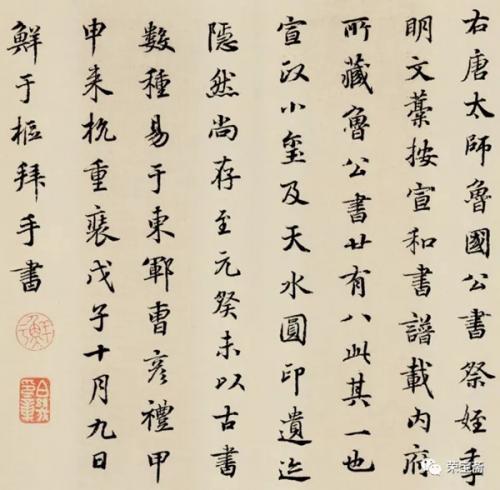 右唐太師魯國公書祭姪季
明文藁按宣和書譜載內府
所藏魯公書廿有八此其一也
宣政小璽及天水圓印遺迹
隱然尚存至元癸未以古書
數種易于東鄆曹彥禮甲
申来杭重裝戊子十月九日
鮮于樞拜手書
荣宝斋